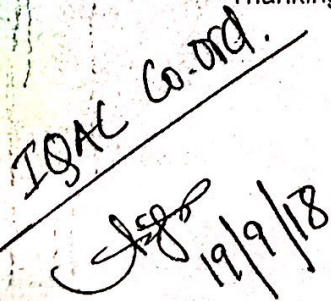 Thanking
IQAC Co-ord.
19/9/18